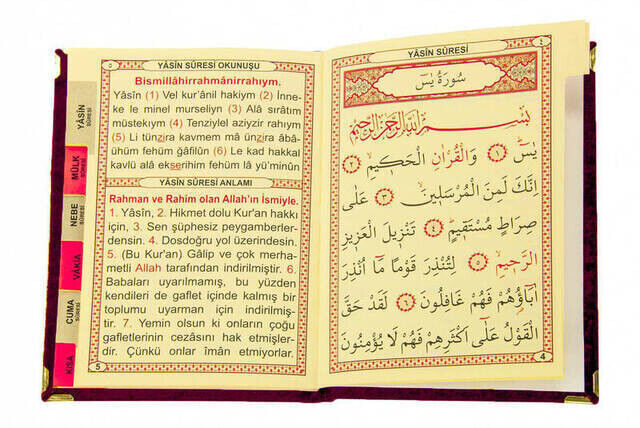 YÂSÎN SÛRESİ
٤
سُورَةُ يٰسٓ
بِسْمِ اللّٰهِ الرَّحْمٰنِ الرَّحٖيمِ
يٰسٓ ﴿١﴾ وَالْقُرْاٰنِ الْحَكٖيمِ ﴿٢﴾
اِنَّكَ لَمِنَ الْمُرْسَلٖينَ ﴿٣﴾ عَلٰى
صِرَاطٍ مُسْتَقٖيمٍ ﴿٤﴾ تَنْزٖيلَ الْعَزٖيزِ
الرَّحٖيمِ ﴿٥﴾ لِتُنْذِرَ قَوْمًا مَٓا اُنْذِرَ
اٰبَٓاؤُ۬هُمْ فَهُمْ غَافِلُونَ ﴿٦﴾ لَقَدْ حَقَّ
الْقَوْلُ عَلٰٓى اَكْثَرِهِمْ فَهُمْ لَا يُؤْمِنُونَ
4
٥
YÂSÎN SÛRESİ OKUNUŞU
Bismillâhirrahmânirrahıym.
Yâsîn (1) Vel kur'ânil hakiym (2) İnne-
ke le minel murseliyn (3) Alâ sırâtım
müstekıym (4) Tenziylel aziyzir rahıym
(5) Li tünzira kavmem mâ ünzira âbâ-
ühüm fehüm ğafilûn (6) Le kad hakkal
kavlü alâ ekserihim fehüm lâ yü'minûn
YÂSÎN SÛRESİ ANLAMI
Rahman ve Rahim olan Allah'ın İsmiyle.
1. Yâsîn, 2. Hikmet dolu Kur'an hakkı
için, 3. Sen şüphesiz peygamberler-
densin. 4. Dosdoğru yol üzerindesin.
5. (Bu Kur'an) Gâlip ve çok merha-
metli Allah tarafından indirilmiştir. 6.
Babaları uyarılmamış, bu yüzden
kendileri de gaflet içinde kalmış bir
toplumu uyarman için indirilmiş-
tir. 7. Yemin olsun ki onların çoğu
gafletlerinin cezasını hak etmişler-
dir. Çünkü onlar îmân etmiyorlar.
5
YÂSÎN
SÛRESİ
MÜLK
SÛRESİ
NEBE
SÛRESİ
VÂKIA
CUMA
SÛRESİ
KISA